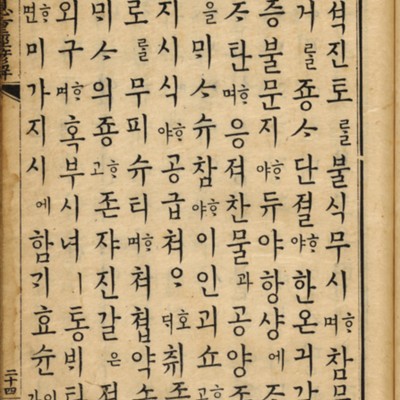 석진토를불식무시ᄒᆞ며참
거를죵ᄉᆞ단졀ᄒᆞ야한온긔
증불문지ᄒᆞ야듀야항샹에
탄ᄒᆞ며응져찬물과공양
을믜ᄉᆞ슈참ᄒᆞ야이인괴쇼ᄒᆞ고
지시식ᄒᆞ야공급쳐ᄋᆞ호ᄃᆡ취존
로를무피슈티ᄒᆞ며쳐쳡약소
믜ᄉᆞ의죵ᄒᆞ고존쟈진갈은
외구ᄒᆞ며혹부시녀ㅣ통비
ᄒᆞ면미가지시에함긔효슌
經諺解
二十四